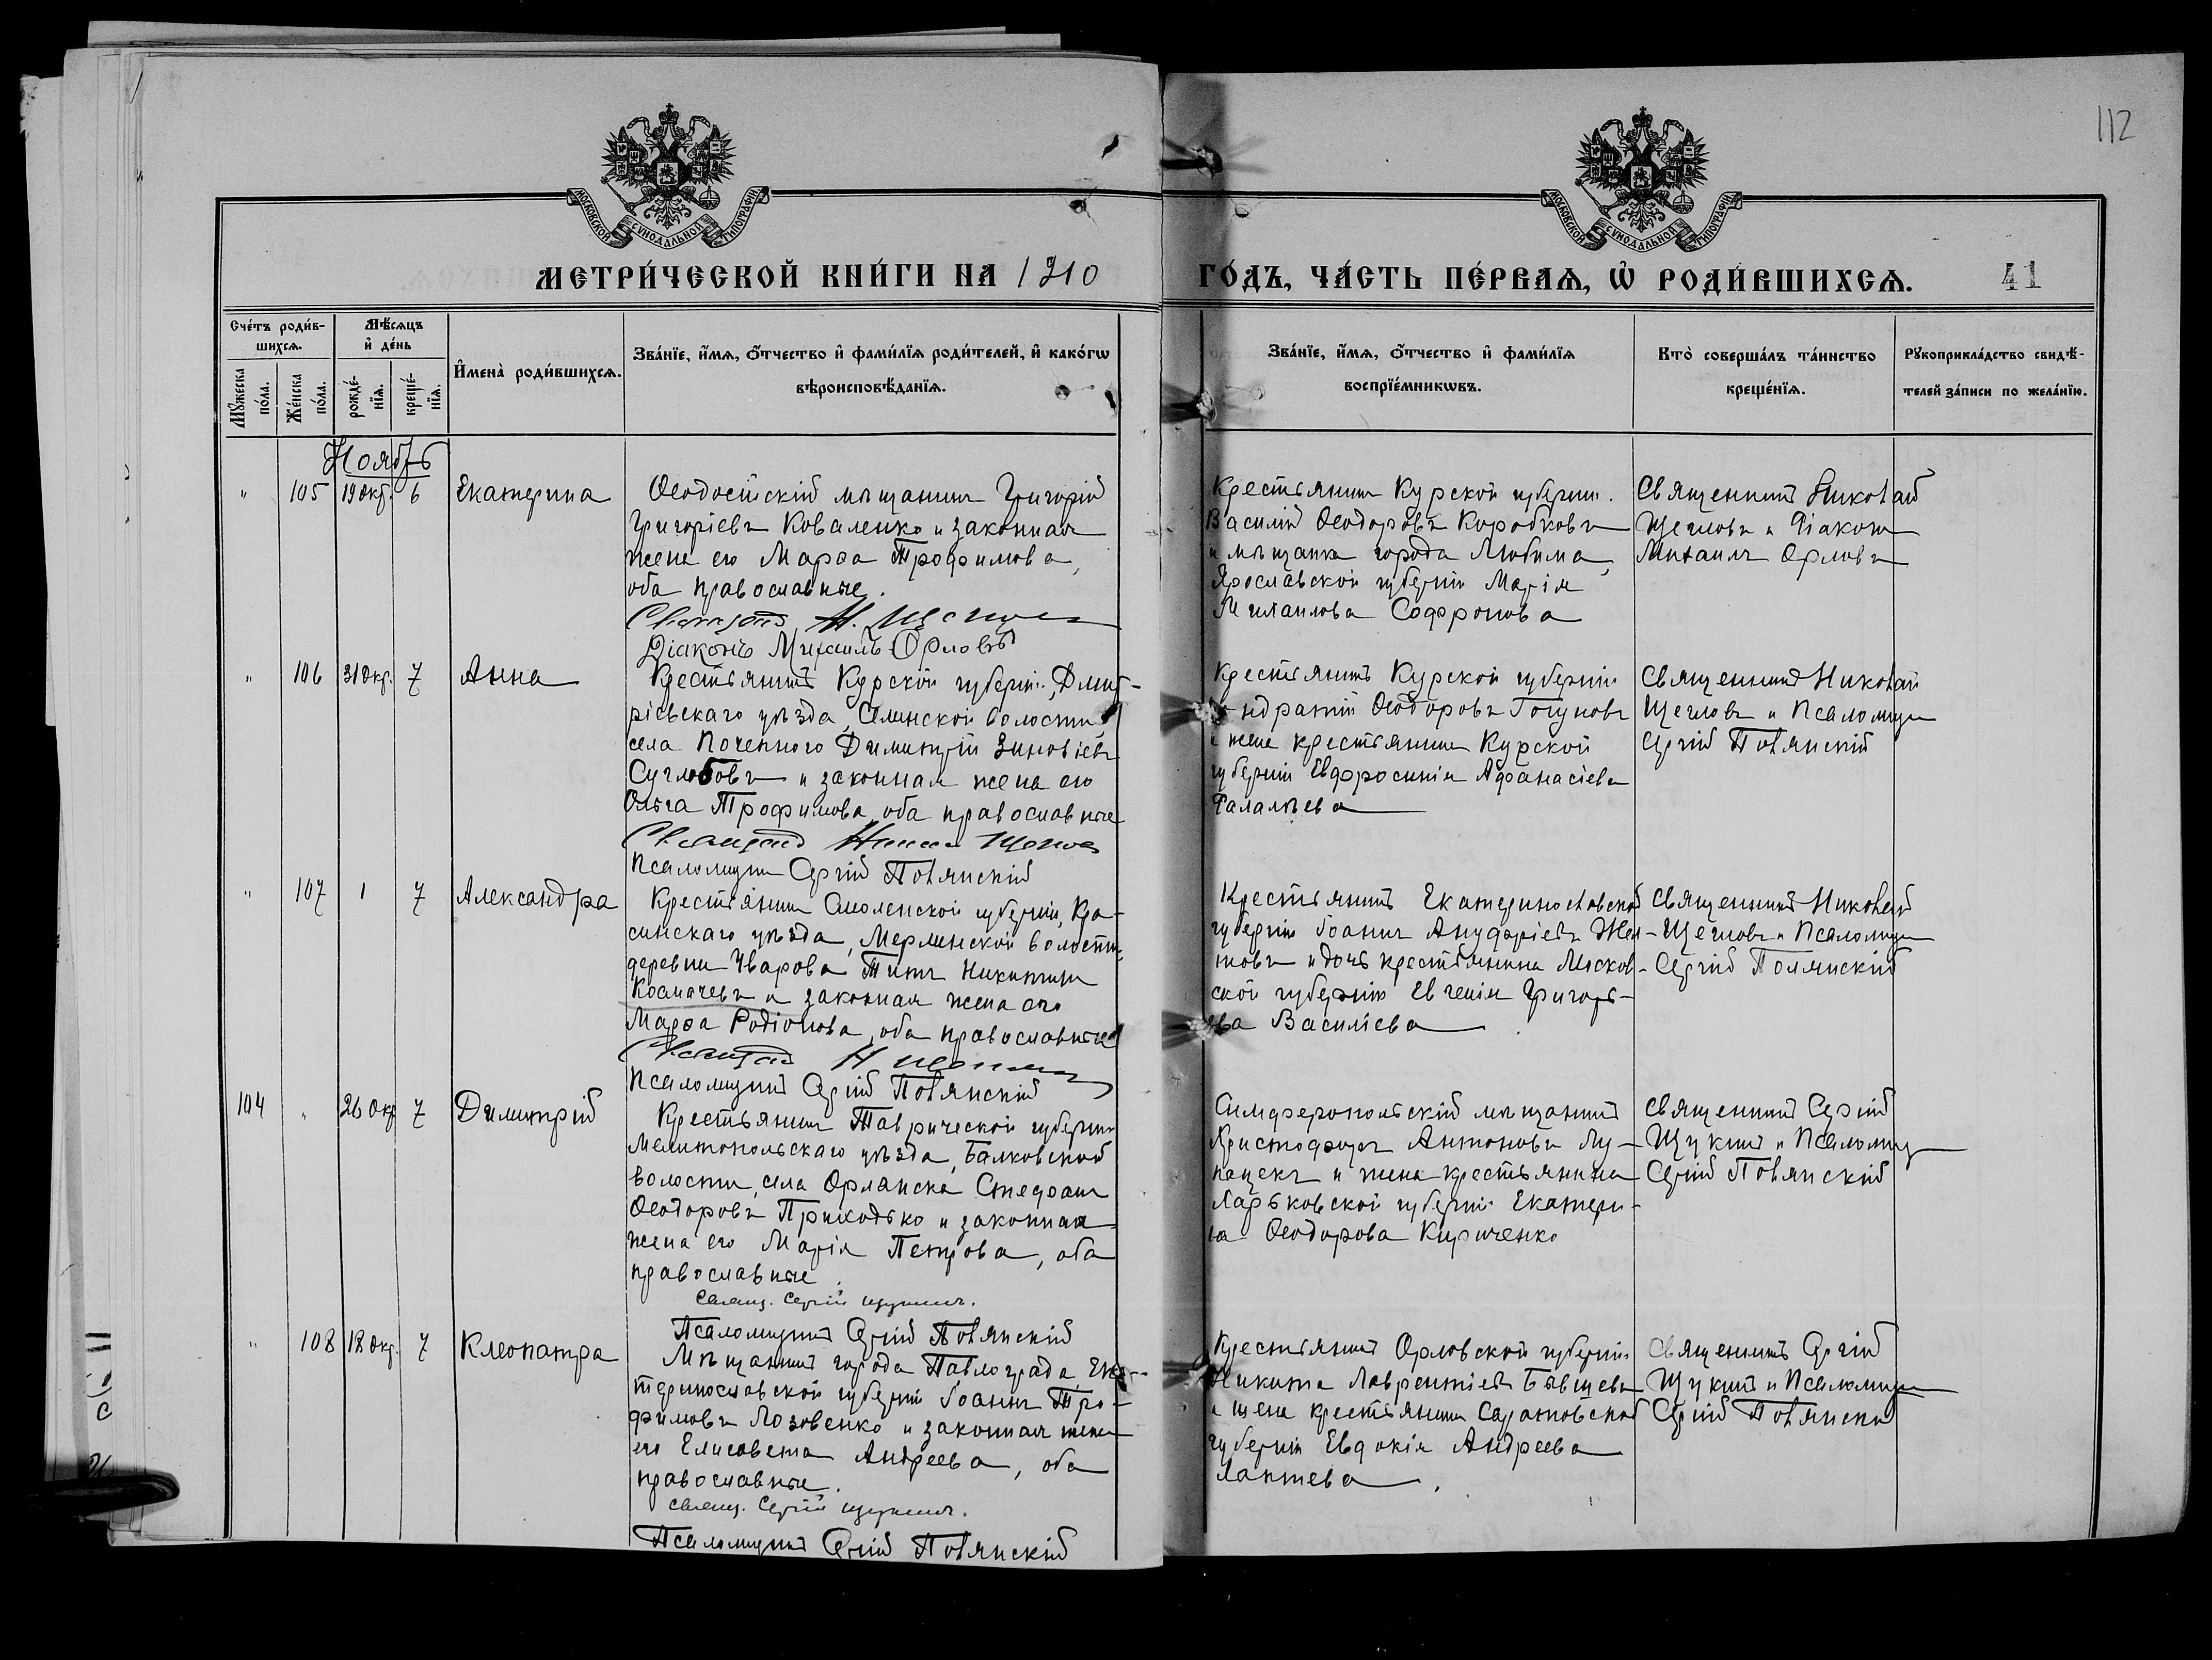 112
МОСКОВСКОЙ СУНОДАЛЬНОЙ ТИПОГРАФІИ
МОСКОВСКОЙ СУНОДАЛЬНОЙ ТИПОГРАФІИ
МЕТРИ́ЧЕСКОЙ КНИ́ГИ НА 1910
ГО́ДЪ, ЧА́СТЬ ПЕ́РВАѦ, Ѽ РОДИ́ВШИХСѦ. 41
Сче́тъ роди́в-
шихсѧ.
Мꙋ́жеска по́ла.
Же́нска по́ла.
Мѣ́сѧцъ
и҆ де́нь
рожде́-
нїѧ.
креще́-
нїѧ.
И҆мена̀ роди́вшихсѧ.
Зва́нїе, и҆́мѧ, ѻ҆́тчество и҆ фами́лїѧ роди́телей, и҆ како́гѡ
вѣроисповѣ́данїѧ.
Зва́нїе, и҆́мѧ, ѻ҆́тчество и҆ фами́лїѧ
воспрїе́мникѡвъ.
Кто̀ соверша́лъ та́инство
креще́нїѧ.
Рꙋкоприкла́дство свидѣ́-
телей за́писи по жела́нїю.
Ноябрь
" 105 19 Окт. 6 Екатерина
Ѳеодосійскій мѣщанинъ Григорій
Григоріевъ Коваленко и законная
жена его Марѳа Трофимова,
оба православные.
Священ. Н. Щегловъ
Діаконъ Михаилъ Орловъ
Крестьянинъ Курской губерніи
Василій Ѳеодоровъ Коробковъ
и мѣщанка города Любима,
Ярославской губерніи Марія
Михаилова Софронова
Священникъ Николай
Щегловъ и Діаконъ
Михаилъ Орловъ
" 106 31 Окт. 7 Анна
Крестьянинъ Курской губерніи, Дмит-
ріевскаго уѣзда, Селинской волости,
села Поченного Димитрій Зиновіевъ
Суглобовъ и законная жена его
Ольга Трофимова, оба православные
Священ. Щегловъ
Псаломщикъ Сергій Полянскій
Крестьянинъ Курской губерніи
Ѳеодоровъ
и жена крестьянина Курской
губерніи Евфросинія Аѳанасіева
Фалалѣева
Священникъ Николай
Щегловъ и Псаломщикъ
Сергій Полянскій
" 107 1 7 Александра
Крестьянинъ Смоленской губерніи, Кра-
синскаго уѣзда, Мерлинской волости,
деревни Уварова Титъ Никитинъ
Космачевъ и законная жена его
Марѳа Родіонова, оба православные
Священ. Н. Щегловъ
Псаломщикъ Сергій Полянскій
Крестьянинъ Екатеринославской
губерніи Іоаннъ Ануфріевъ Жел-
товъ и дочь крестьянина Москов-
ской губерніи Евгенія Григорь-
ева Василіева
Священникъ Николай
Щегловъ и Псаломщикъ
Сергій Полянскій
104 " 26 Окт. 7 Димитрій
Крестьянинъ Таврической губерніи
Мелитопольскаго уѣзда, Балковской
волости, села Орлянска Стефанъ
Ѳеодоровъ Приходько и законная
жена его Марія Петрова, оба
православные.
Свящ. Сергій Щукинъ.
Псаломщикъ Сергій Полянскій
Симферопольскій мѣщанинъ
Христофоръ Антоновъ Лу-
пацекъ и жена крестьянина
Харьковской губерніи Екатери-
на Ѳеодорова Кириченко
Священникъ Сергій
Щукинъ и Псаломщ.
Сергій Полянскій
" 108 18 Окт. 7 Клеопатра
Мѣщанинъ города Павлограда, Ека-
теринославской губерніи Іоаннъ Тро-
фимовъ Лозовенко и законная жена
его Елисавета Андреева, оба
православные.
Свящ. Сергій Щукинъ.
Псаломщикъ Сергій Полянскій
Крестьянинъ Орловской губерніи
Никита Лаврентіевъ Бывшевъ
и жена крестьянина Саратовской
губерніи Евдокія Андреева
Лаптева.
Священникъ Сергій
Щукинъ и Псаломщикъ
Сергій Полянскій